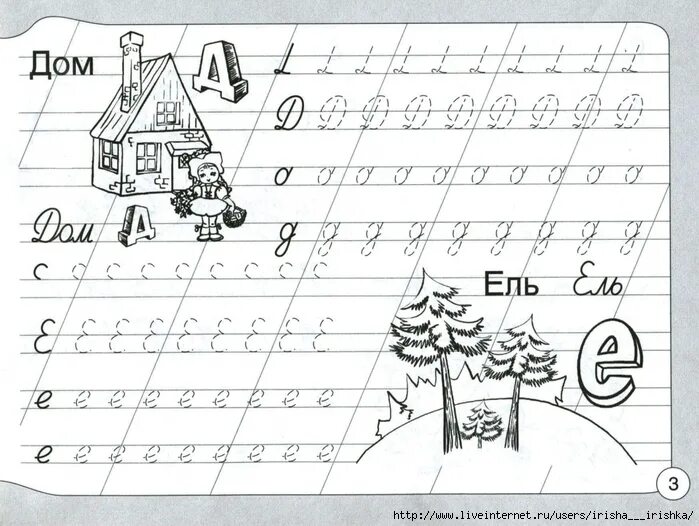 Дом Д
Д Д Д Д Д Д Д Д Д
о о о о о о о о о о
Дом Д
д д д д д д д д д
с с с с с с с с с
Ель Ель
Е Е Е Е Е Е Е Е Е
е
е е е е е е е е е
е е е е е е е е е
3
http://www.liveinternet.ru/users/irisha___irishka/